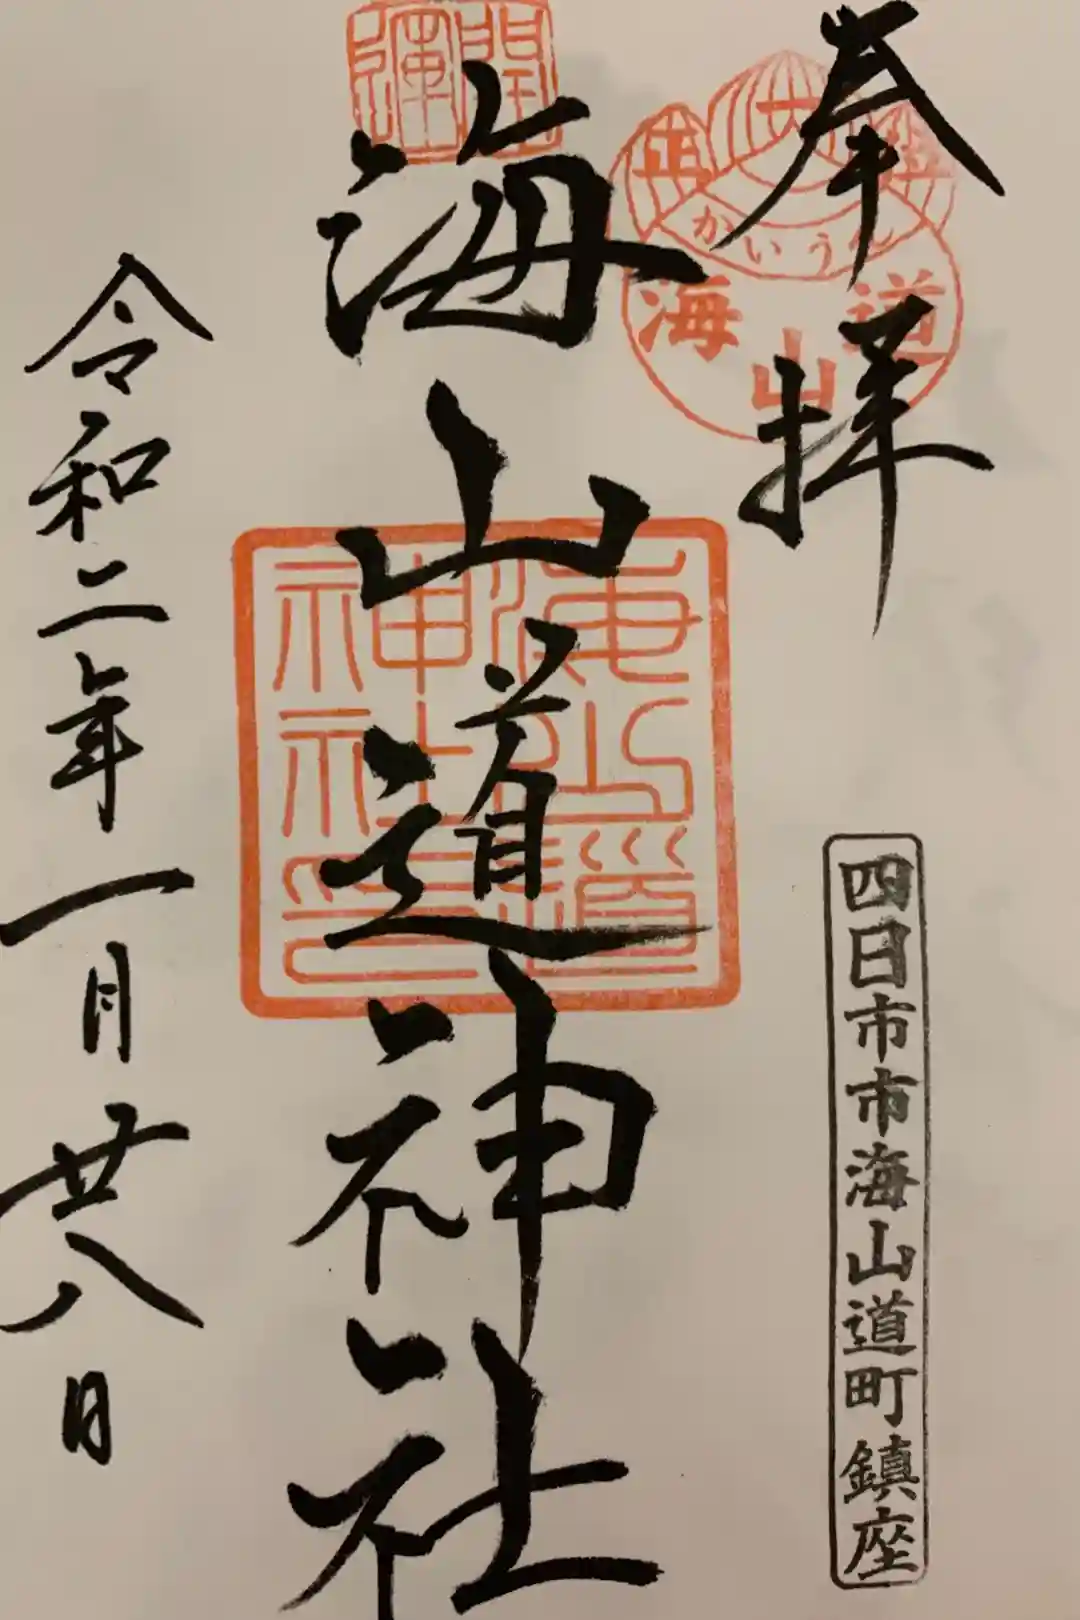 奉拝
かいうん
海山道
四日市市海山道町鎮座
開運
海山道神社
海山道
神社印
令和二年一月廿八日